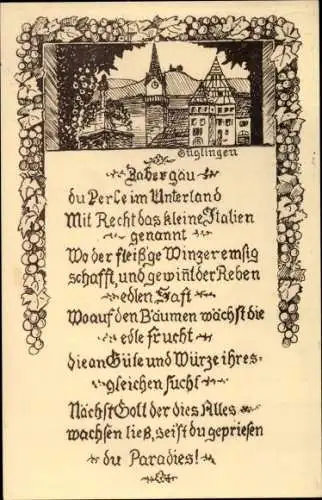 Güglingen
Zabergäu
du Perle im Unterland
Mit Recht das kleine Italien
genannt
Wo der fleiß'ge Winzer emsig
schafft, und gewinnt der Reben
edlen Saft
Wo auf den Bäumen wächst die
edle frucht
die an Güte und Würze ihres-
gleichen sucht
Nächst Gott der dies Alles
wachsen ließ, sei'st du gepriesen
du Paradies!